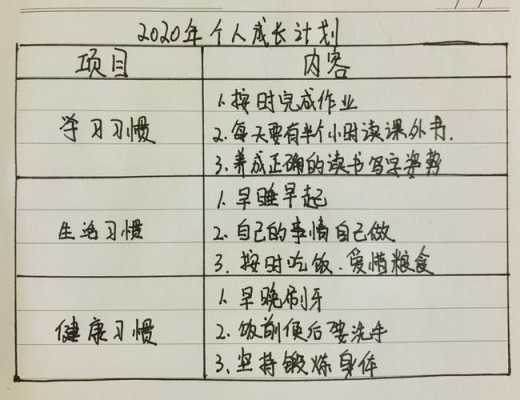 2020年个人成长计划
项目 内容
学习习惯
1.按时完成作业
2.每天要有半个小时读课外书.
3.养成正确的读书写字姿势
生活习惯
1.早睡早起
2.自己的事情自己做
3.按时吃饭、爱惜粮食
健康习惯
1.早晚刷牙
2.饭前便后要洗手
3.坚持锻炼身体